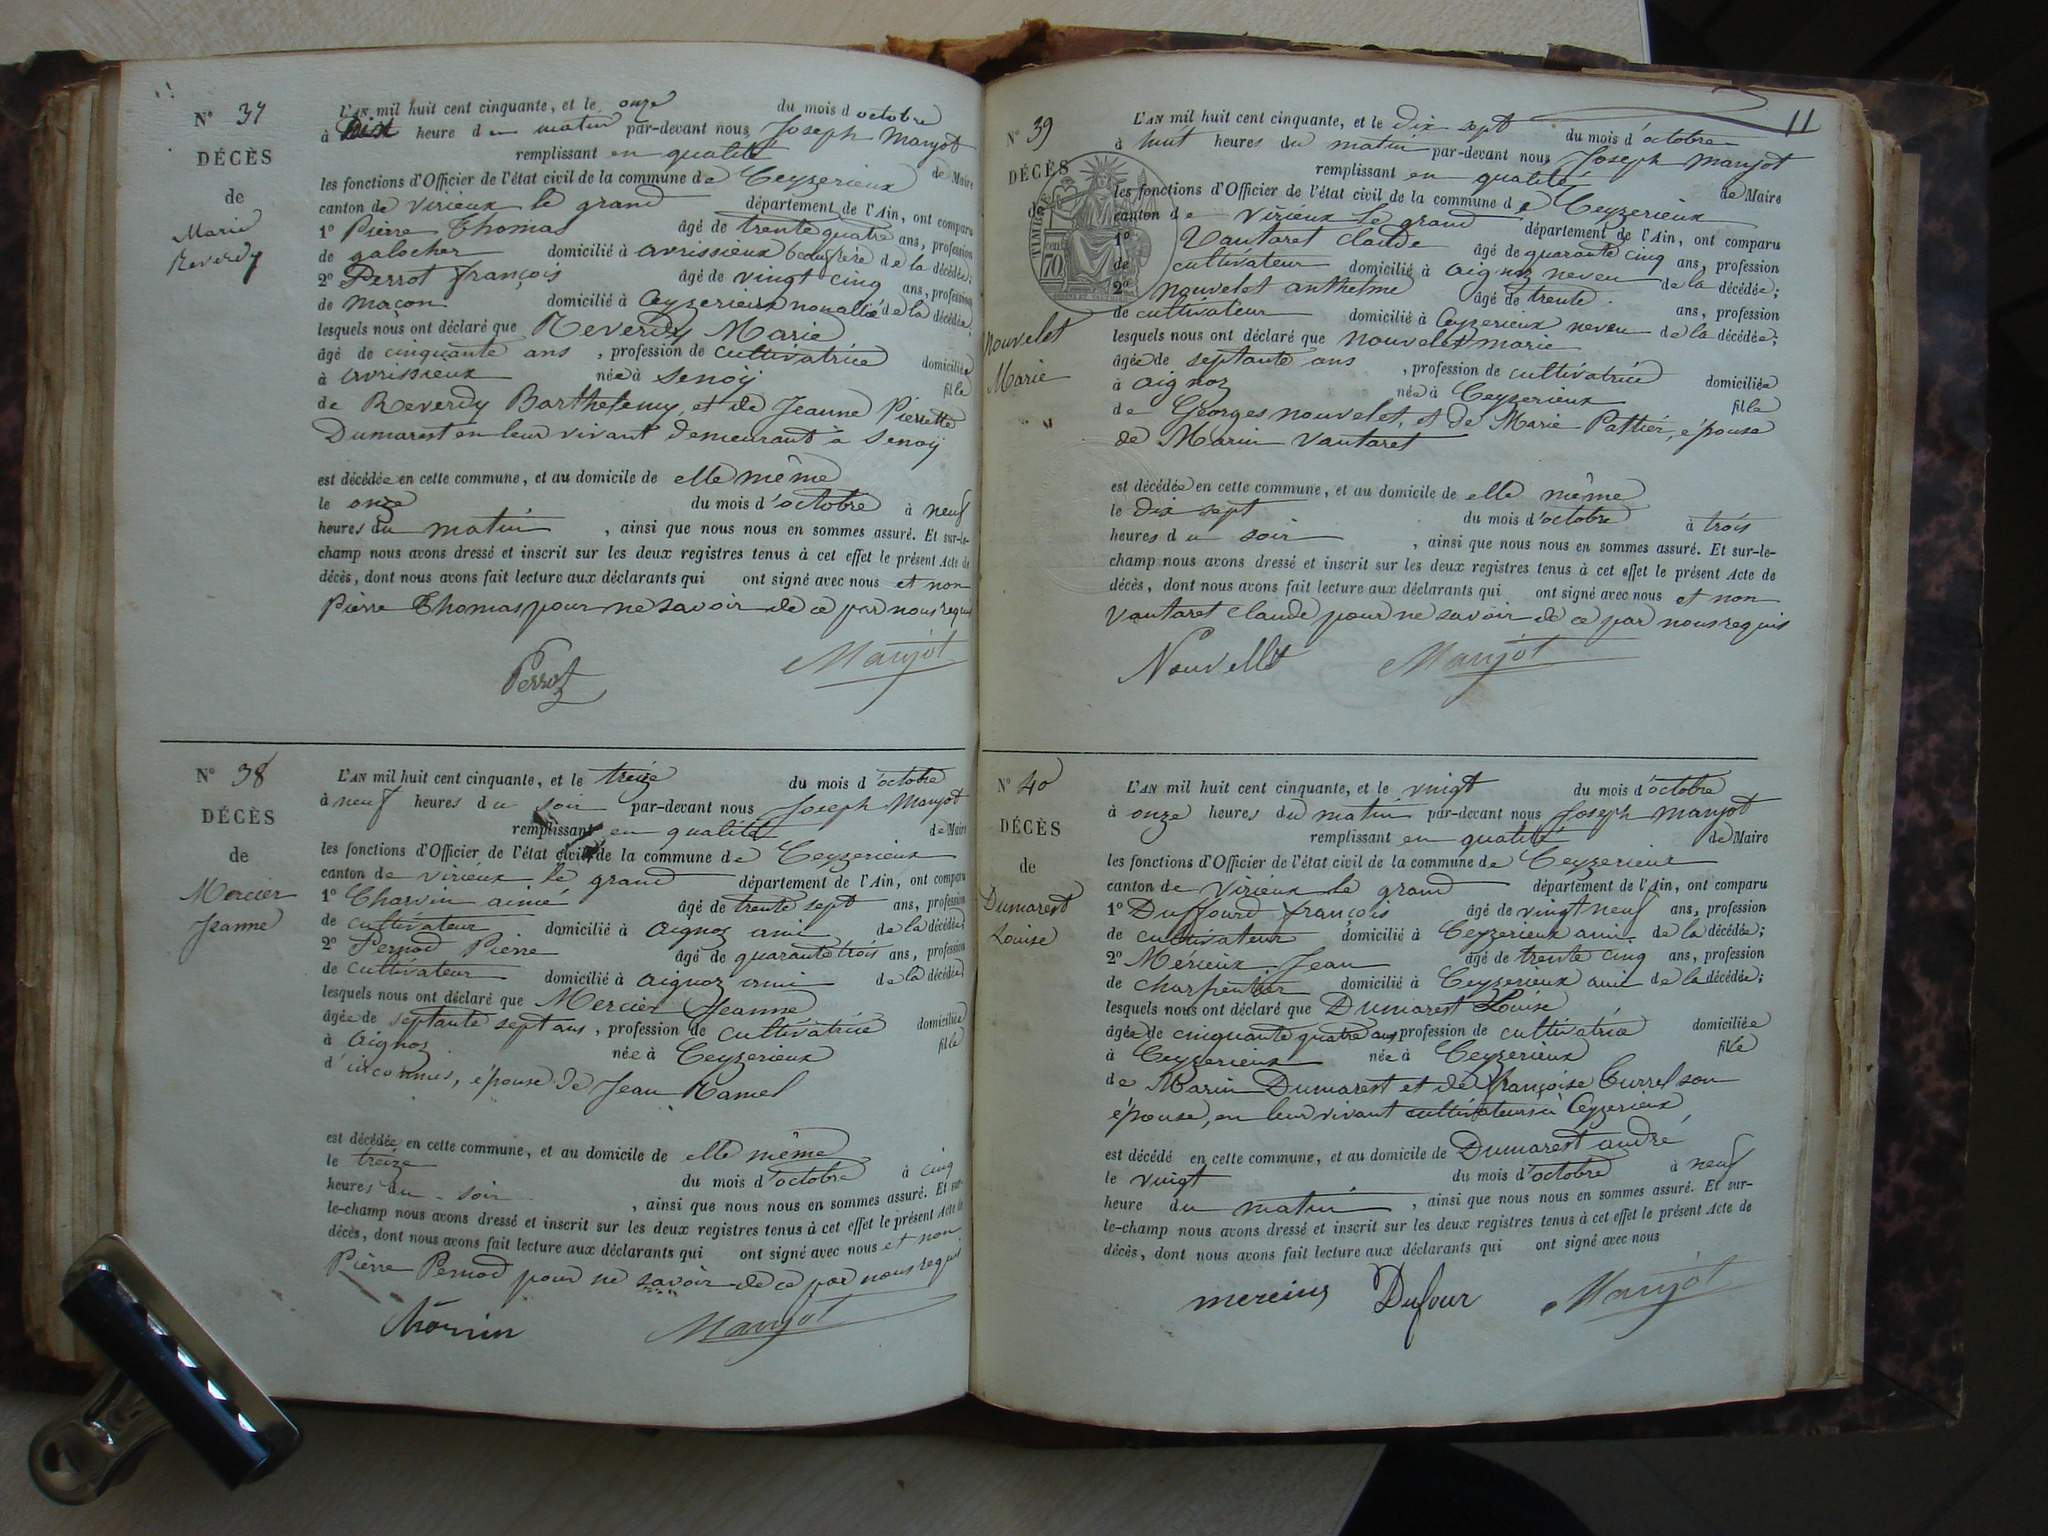 N° 37
DÉCÈS
de
Marie
Reverdy
L'AN mil huit cent cinquante, et le onze du mois d'octobre
à Dix heure du matin par-devant nous Joseph Maujot
remplissant en qualité de Maire
les fonctions d'Officier de l'état civil de la commune de Ceyzerieux
canton de virieux le grand département de l'Ain, ont comparu
1° Pierre Thomas âgé de trente quatre ans, profession
de galocher domicilié à avrissieux beaufrère de la décédée;
2° Perrot françois âgé de vingt cinq ans, profession
de maçon domicilié à Ceyzerieux non allié de la décédée;
lesquels nous ont déclaré que Reverdy Marie
âgé de cinquante ans, profession de cultivatrice domiciliée
à avrissieux née à Senoÿ fille
de Reverdy Barthelemy, et de Jeanne Pierrette
Dumarest en leur vivant demeurant à Senoÿ
est décédée en cette commune, et au domicile de elle même
le onze du mois d'octobre à neuf
heures du matin, ainsi que nous nous en sommes assuré. Et sur-le-
champ nous avons dressé et inscrit sur les deux registres tenus à cet effet le présent Acte de
décès, dont nous avons fait lecture aux déclarants qui ont signé avec nous et non
Pierre Thomas pour ne savoir de ce par nous requis
Perrot Maujot
N° 38
DÉCÈS
de
Mercier
Jeanne
L'AN mil huit cent cinquante, et le treize du mois d'octobre
à neuf heures du soir par-devant nous Joseph Maujot
remplissant en qualité de Maire
les fonctions d'Officier de l'état civil de la commune de Ceyzerieux
canton de virieux le grand département de l'Ain, ont comparu
1° Charvin aimé âgé de trente sept ans, profession
de cultivateur domicilié à aignoz ami de la décédée;
2° Pernod Pierre âgé de quarante trois ans, profession
de cultivateur domicilié à aignoz ami de la décédée;
lesquels nous ont déclaré que Mercier Jeanne
âgée de septante sept ans, profession de cultivatrice domiciliée
à aignoz née à Ceyzerieux fille
d'inconnus, épouse de Jean Ramel
est décédée en cette commune, et au domicile de elle même
le treize du mois d'octobre à cinq
heures du soir, ainsi que nous nous en sommes assuré. Et sur-
le-champ nous avons dressé et inscrit sur les deux registres tenus à cet effet le présent Acte de
décès, dont nous avons fait lecture aux déclarants qui ont signé avec nous et non
Pierre Pernod pour ne savoir de ce par nous requis
Maujot
11
N° 39
DÉCÈS
de
Nouvelet
Marie
L'AN mil huit cent cinquante, et le Dix sept du mois d'octobre
à huit heures du matin par-devant nous Joseph Maujot
remplissant en qualité de Maire
les fonctions d'Officier de l'état civil de la commune de Ceyzerieux
canton de virieux le grand département de l'Ain, ont comparu
1° Vautaret Claude âgé de quarante cinq ans, profession
de cultivateur domicilié à aignoz neveu de la décédée;
2° Nouvelet anthelme âgé de trente ans, profession
de cultivateur domicilié à Ceyzerieux neveu de la décédée;
lesquels nous ont déclaré que nouvelet marie
âgée de septante ans, profession de cultivatrice domiciliée
à aignoz née à Ceyzerieux fille
de Georges nouvelet, et de Marie Pattier, épouse
de Marin Vautaret
est décédée en cette commune, et au domicile de elle même
le Dix sept du mois d'octobre à trois
heures du soir, ainsi que nous nous en sommes assuré. Et sur-le-
champ nous avons dressé et inscrit sur les deux registres tenus à cet effet le présent Acte de
décès, dont nous avons fait lecture aux déclarants qui ont signé avec nous et non
Vautaret Claude pour ne savoir de ce par nous requis
Nouvellet Maujot
N° 40
DÉCÈS
de
Dumarest
Louise
L'AN mil huit cent cinquante, et le vingt du mois d'octobre
à onze heures du matin par-devant nous Joseph Maujot
remplissant en qualité de Maire
les fonctions d'Officier de l'état civil de la commune de Ceyzerieux
canton de Virieux le grand département de l'Ain, ont comparu
1° Duffourd françois âgé de vingt neuf ans, profession
de cultivateur domicilié à Ceyzerieux ami de la décédée;
2° Mérieux Jean âgé de trente cinq ans, profession
de charpentier domicilié à Ceyzerieux ami de la décédée;
lesquels nous ont déclaré que Dumarest Louise
âgée de cinquante quatre ans profession de cultivatrice domiciliée
à Ceyzerieux née à Ceyzerieux fille
de Marin Dumarest et de françoise Currel son
épouse, en leur vivant cultivateurs à Ceyzerieux,
est décédé en cette commune, et au domicile de Dumarest andré,
le vingt du mois d'octobre à neuf
heure du matin, ainsi que nous nous en sommes assuré. Et sur-
le-champ nous avons dressé et inscrit sur les deux registres tenus à cet effet le présent Acte de
décès, dont nous avons fait lecture aux déclarants qui ont signé avec nous
Dufour Maujot